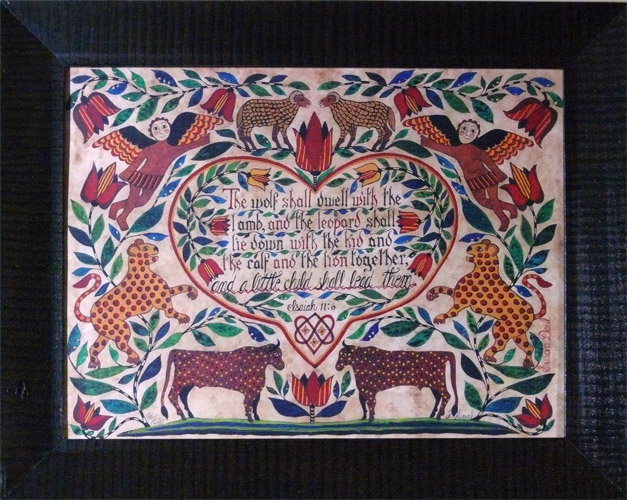 The wolf shall dwell with the
lamb, and the leopard shall
lie down with the kid and
the calf and the lion together;
and a little child shall lead them.
Isaiah 11:6